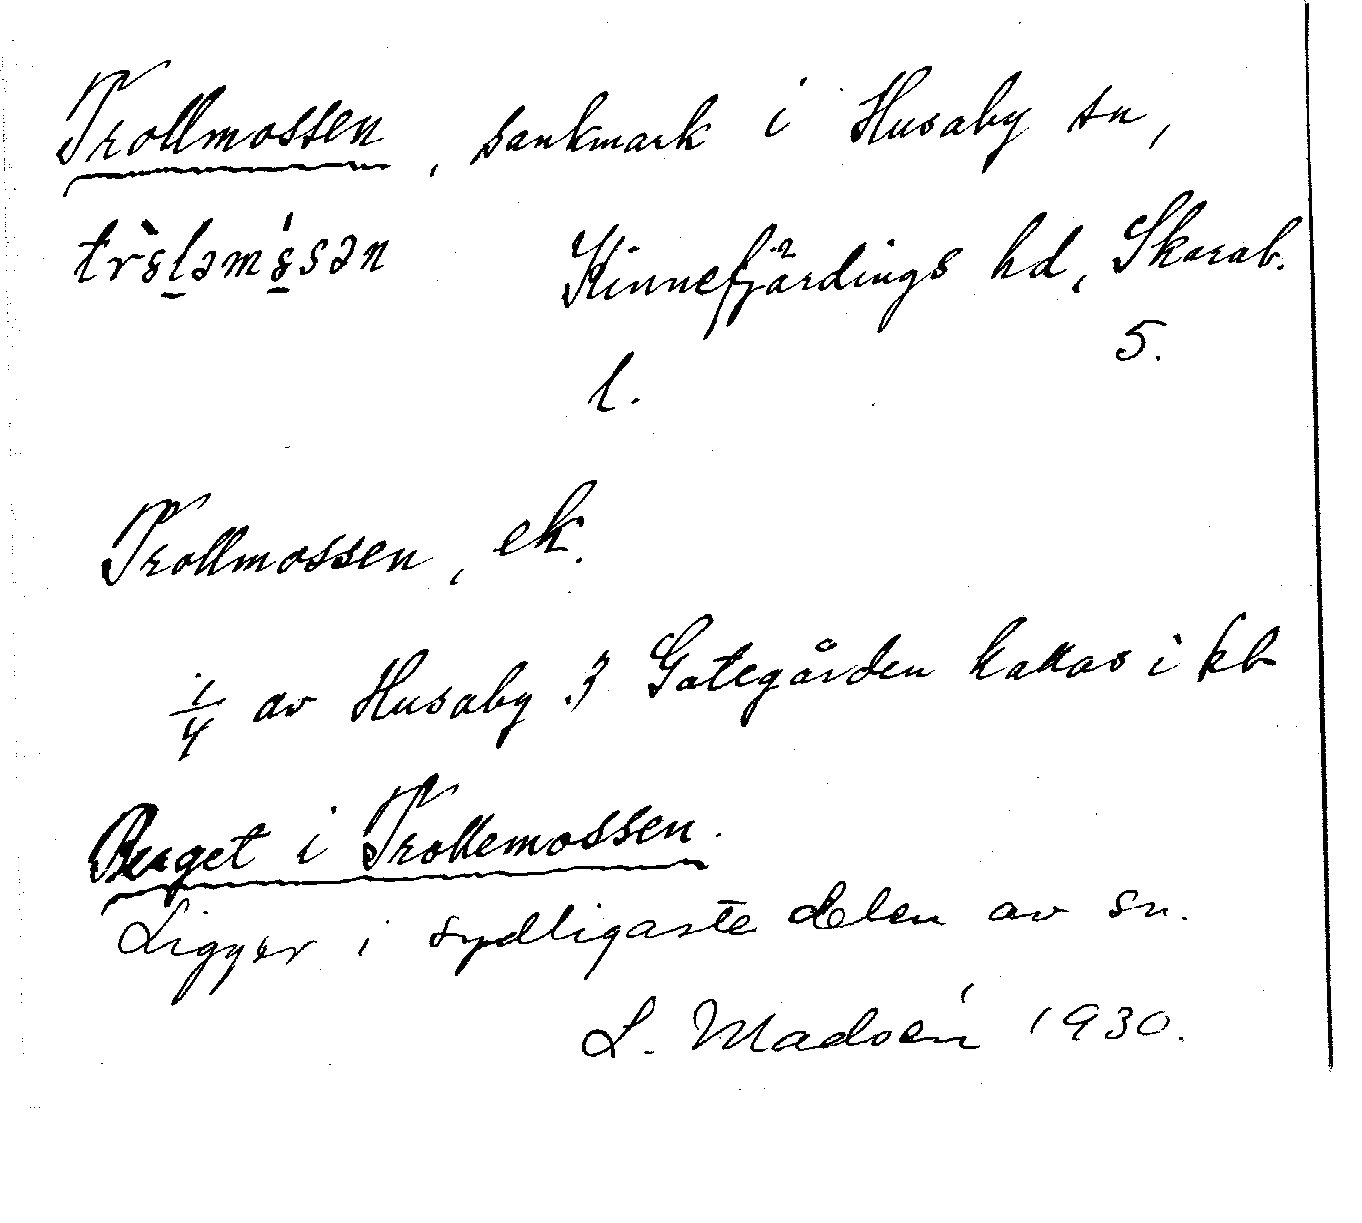 Trollmossen, sankmark i Husaby sn,
Kinnefjärdings hd, Skarab.
l. 5.
Trollmossen, ek.
1/4 av Husaby 3 Gategården kallas i kb
Berget i Trollemossen.
Ligger i sydligaste delen av sn.
L. Madsén 1930.